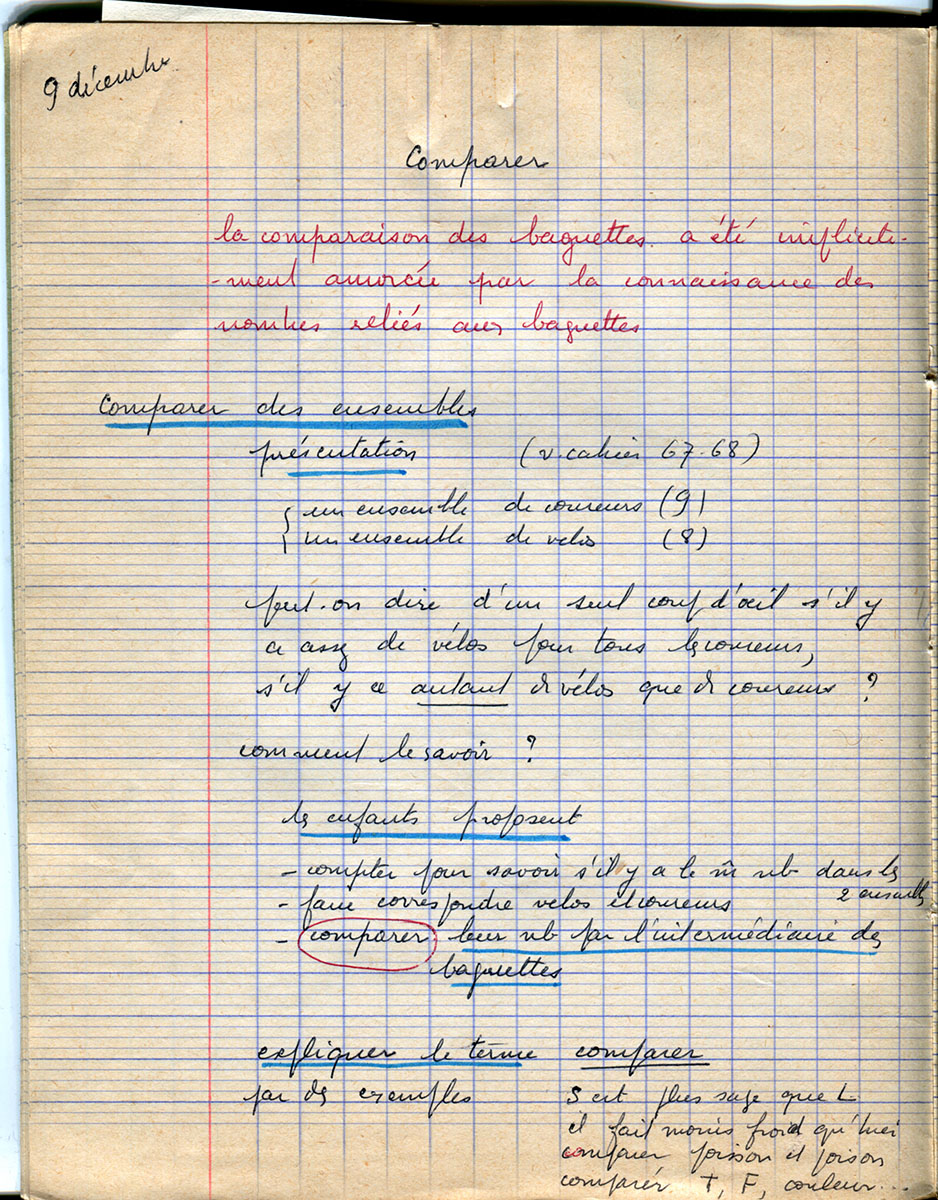 9 décembre
Comparer
la comparaison des baguettes. a été implicite-
-ment amorcée par la connaissance des
nombres reliés aux baguettes
Comparer des ensembles
présentation (v. cahier 67-68)
{ un ensemble de coureurs (9)
un ensemble de vélos (8)
peut-on dire d'un seul coup d'œil s'il y
a assez de vélos pour tous les coureurs,
s'il y a autant de vélos que de coureurs ?
comment le savoir ?
les enfants proposent
- compter pour savoir s'il y a le m̂ nb dans les
2 ensembles
- faire correspondre vélos et coureurs
- comparer leur nb par l'intermédiaire des
baguettes
expliquer le terme comparer
par des exemples S est plus sage que L
il fait moins froid qu'hier
comparer poisson et poison
comparer T, F, couleur...